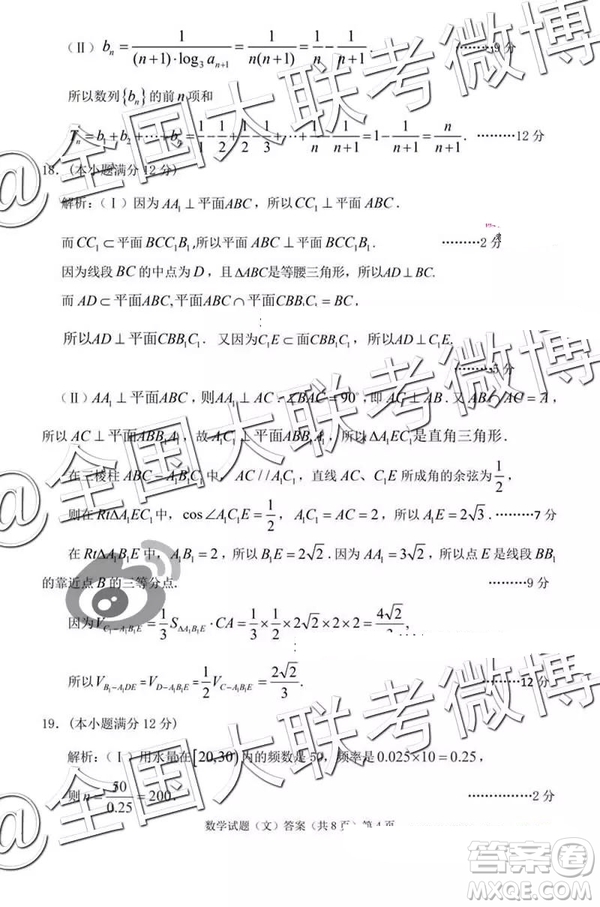 (Ⅱ) bₙ = 1/((n+1)·log₃aₙ₊₁) = 1/(n(n+1)) = 1/n − 1/(n+1). ………9分
所以数列{bₙ}的前n项和
Tₙ = b₁+b₂+…+bₙ = 1/1 − 1/2 + 1/2 − 1/3 + … + 1/n − 1/(n+1) = 1 − 1/(n+1) = n/(n+1). ………12分
18. (本小题满分12分)
解析:(Ⅰ)因为AA₁⊥平面ABC,所以CC₁⊥平面ABC.
而CC₁⊂平面BCC₁B₁,所以平面ABC⊥平面BCC₁B₁. ………2分
因为线段BC的中点为D,且ΔABC是等腰三角形,
而AD⊂平面ABC,平面ABC∩平面CBB₁C₁=BC,
所以AD⊥平面CBB₁C₁. 又因为C₁E⊂面CBB₁C₁,所以AD⊥C₁E.
………5分
(Ⅱ)AA₁⊥平面ABC,则AA₁⊥AC. ∠BAC=90°,即AC⊥AB. 又AB∩AA₁=A,
所以AC⊥平面ABB₁A₁,故A₁C₁⊥平面ABB₁A₁,所以ΔA₁EC₁是直角三角形.
在三棱柱ABC−A₁B₁C₁中,AC//A₁C₁,直线AC、C₁E所成角的余弦为1/2,
则在RtΔA₁EC₁中,cos∠A₁C₁E=1/2,A₁C₁=AC=2,所以A₁E=2√3. ………7分
在RtΔA₁B₁E中,A₁B₁=2,所以B₁E=2√2. 因为AA₁=3√2,所以点E是线段BB₁
的靠近点B的三等分点. ………9分
因为V_{C₁−A₁B₁E}=1/3 S_{ΔA₁B₁E}·CA=1/3×1/2×2√2×2×2=4√2/3,
所以V_{B₁−A₁DE}=V_{D−A₁B₁E}=1/2 V_{C−A₁B₁E}=2√2/3. ………12分
19. (本小题满分12分)
解析:(Ⅰ)用水量在[20,30)内的频数是50,频率是0.025×10=0.25,
则n=50/0.25=200. ……………2分
数学试题(文)答案(共8页)第4页
@全国大联考微博
@全国大联考微博
@全国大联考微博
答案圈
MXQE.COM